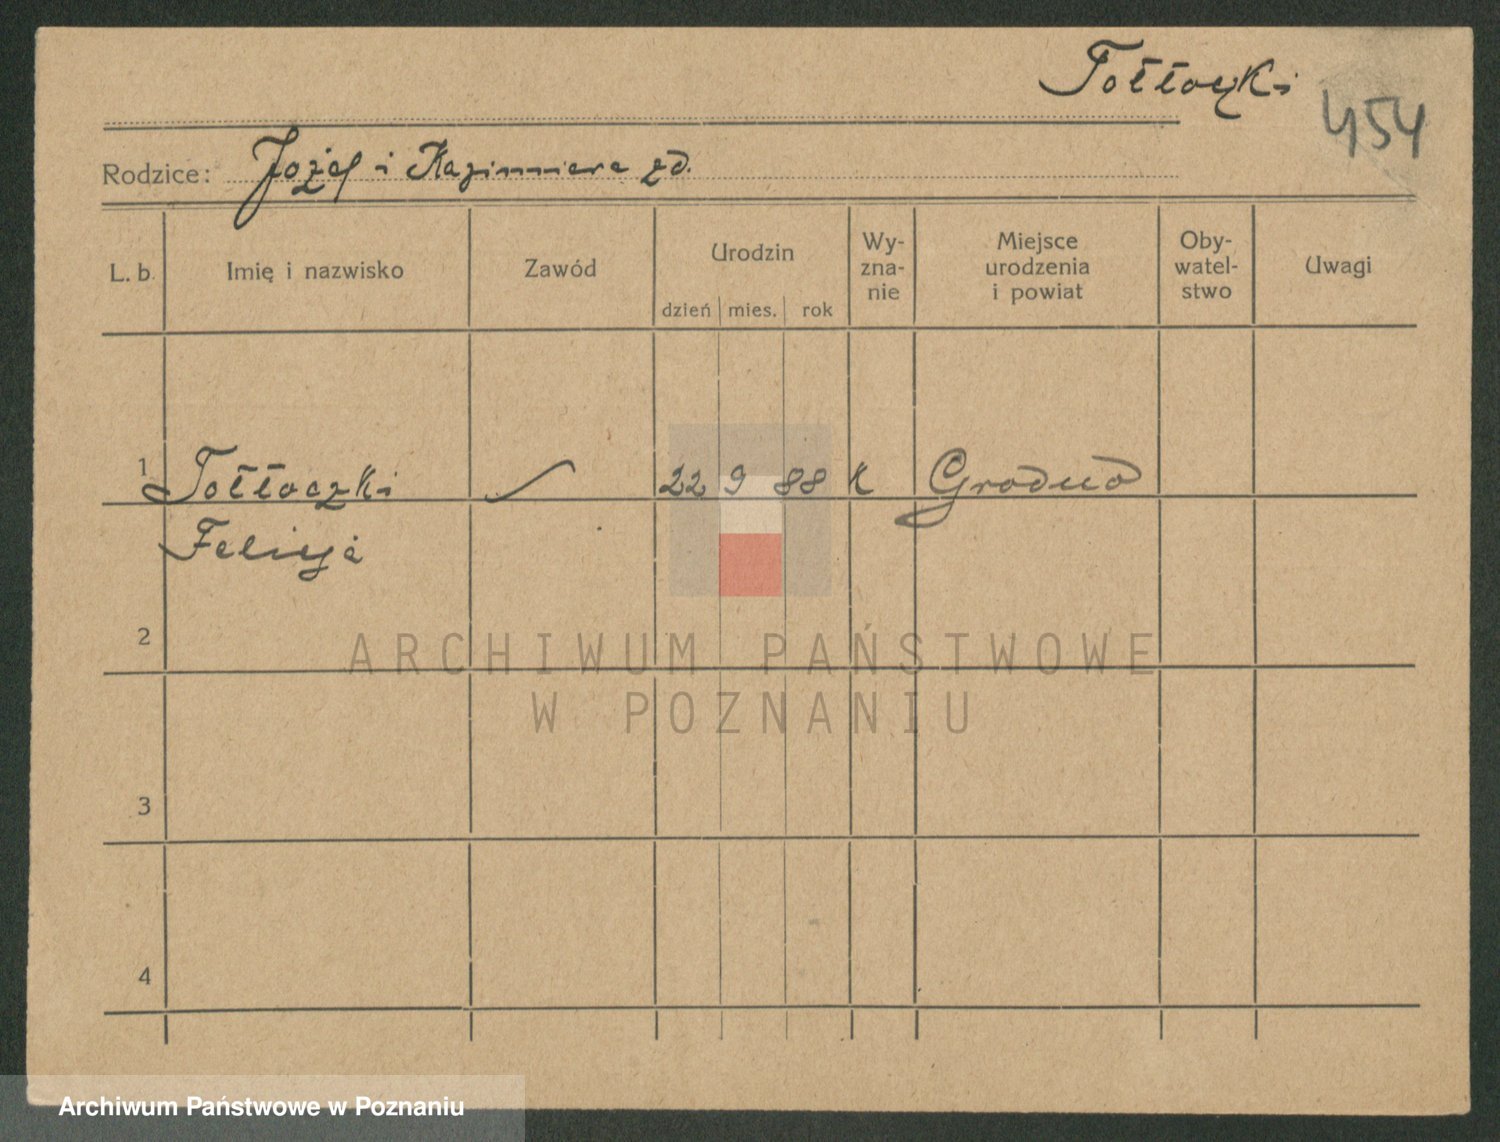 Tołłoczki
454
Rodzice: Józef i Kazimiera zd.
L. b. Imię i nazwisko Zawód Urodzin Wy- zna- nie Miejsce urodzenia i powiat Oby- watel- stwo Uwagi
dzień mies. rok
1 Tołłoczki 22 9 88 k Grodno
Felicja
2
ARCHIWUM PAŃSTWOWE
W POZNANIU
3
4
Archiwum Państwowe w Poznaniu